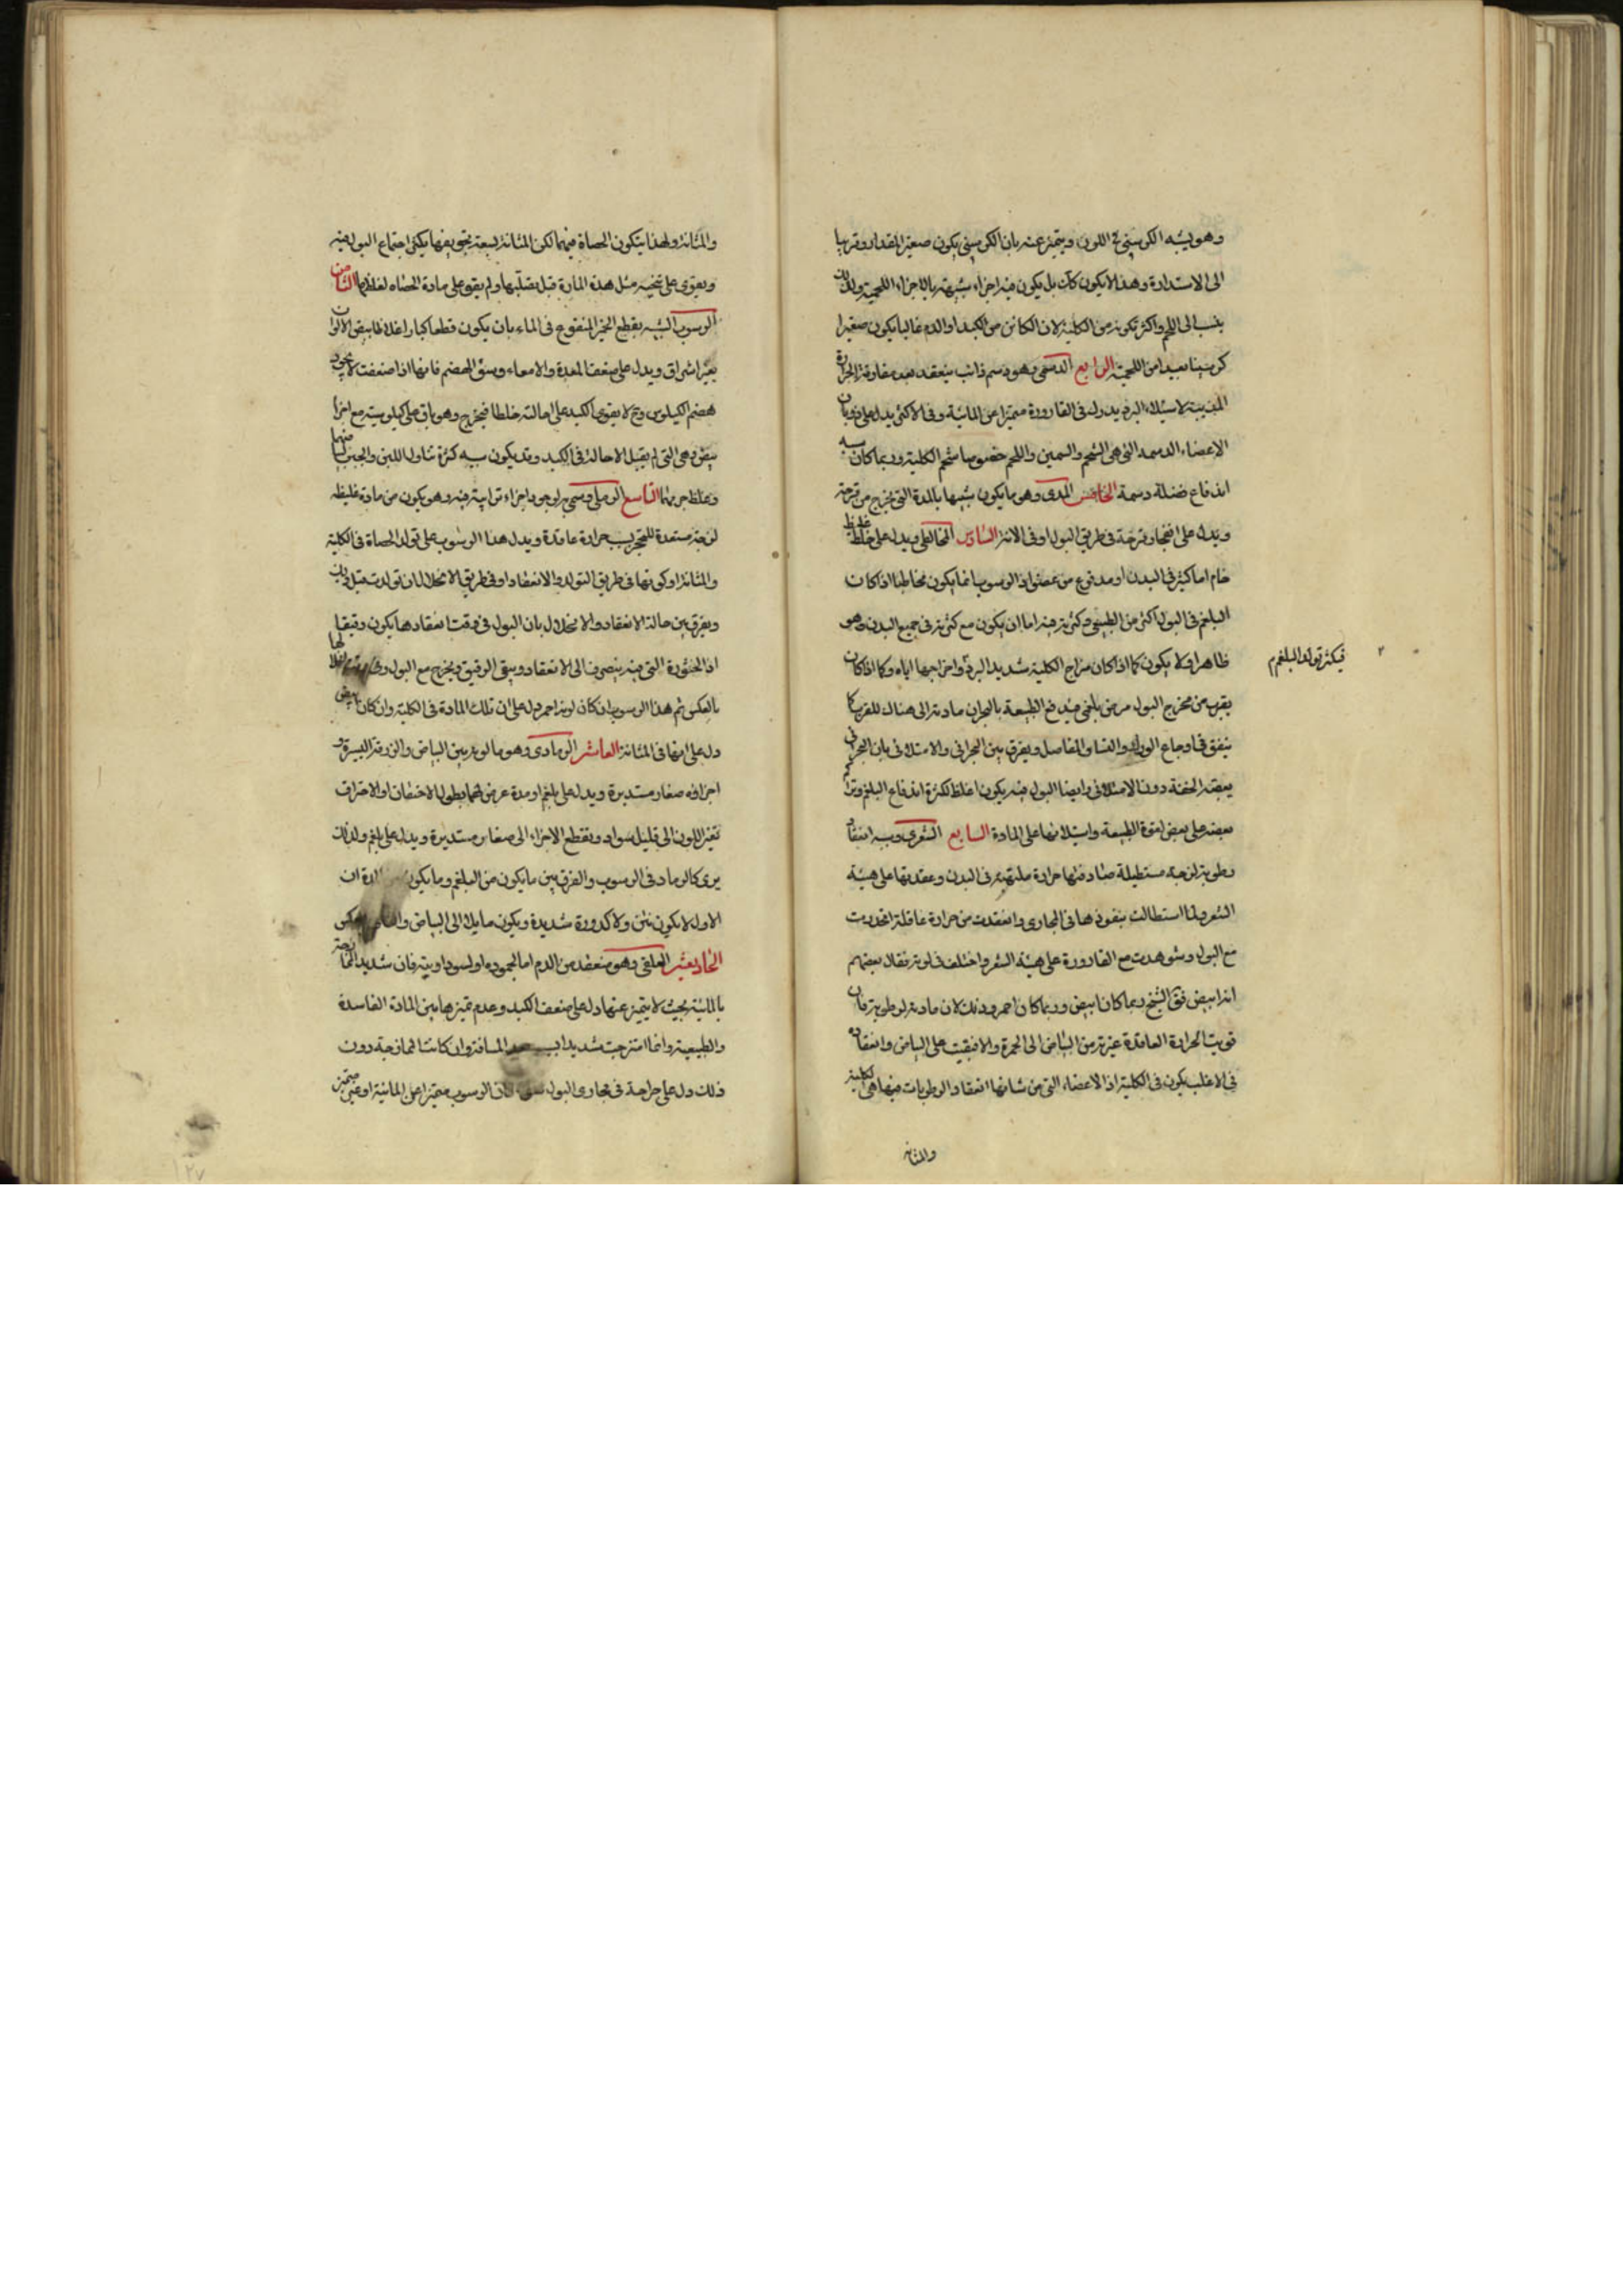 وهو يشبه الكرسني في اللون ويتميز عنه بان الكرسني يكون صغير المقدار وقريبا
الى الاستدارة وهذا لا يكون كذلك بل يكون فيه اجزاء شبيهة بالاجزاء اللحمية ولذلك
ينسب الى اللحم واكثر تكونه من الكلية لان الكائن من الكبد او الدم غالبا يكون صغيرا
كرسنيا بعيدا من اللحمية الرابع الدسمي وهو دسم ذائب ينعقد بعد مفارقة الحرارة
المذيبة لاستيلاء البرد يدرك في القارورة متميزا عن المائية وفي الاكثر يدل على ذوبان
الاعضاء الدسمة التي هي الشحم والسمين واللحم خصوصا شحم الكلية وربما كان سببه
اندفاع فضلة دسمة الخامس المدي وهو ما يكون شبيها بالمدة التي يخرج من قرحة
ويدل على انفجار قرحة في طريق البول او في الانثر السادس المخاطي ويدل على خلط غليظ
خام اما كثير في البدن او مدفوع من عضو اذ الرسوب انما يكون مخاطيا اذا كان
البلغم في البول اكثر من الطبيعي وكثرته فيه اما ان يكون مع كثرته في جميع البدن وهو
ظاهر او لا يكون كما اذا كان مزاج الكلية شديد البرد واخراجها اياه وكما اذا كان
فيكثر تولد البلغم م
يقرب من مخرج البول مرض بلغمي فيدفع الطبيعة بالبحران مادته الى هناك للقرب كما
يتفق في اوجاع الورك والنسا والمفاصل ويفرق بين البحراني والامتلائي بان البحراني
يعقبه الخفة دون الامتلائي وايضا البول فيه يكون اغلظ لكثرة اندفاع البلغم وتراكم
بعضه على بعض لقوة الطبيعة واستيلائها على المادة السابع الشعري وسببه انعقاد
رطوبة لزجة مستطيلة صادفتها حرارة ملتهبة في البدن وعقدتها على هيئة
الشعر ولما استطالت بنفوذها في المجاري وانعقدت من حرارة عاقدة انحدرت
مع البول وشوهدت مع القارورة على هيئة الشعر واختلف في لونه فقال بعضهم
انه ابيض فق الشيخ ربما كان ابيض وربما كان احمر وذلك لان مادته لرطوبة فان
قويت الحرارة العاقدة غيرته من البياض الى الحمرة والا فبقيت على البياض وانعقاده
في الاغلب يكون في الكلية اذ الاعضاء التي من شانها انعقاد الرطوبات فيها هي الكلية
والمثانة
والمثانة ولهذا يتكون الحصاة فيهما لكن المثانة لسعة تجويفها يكثر اجتماع البول فيه
ويقوى على تنحية مثل هذه المادة قبل تصلبها ولم يقو على مادة الحصاة لغلظها الثامن
الرسوب الشبيه بقطع الخبز المنقوع في الماء بان يكون قطعا كبارا غلاظا بيض الالوان
بغير اشراق ويدل على ضعف المعدة والامعاء وسوء الهضم فانها اذا ضعفت لا يجود
هضم الكيلوس وح لا يقوى الكبد على احالته خلطا فيخرج وهو باق على كيلوسيته مع اجزا
بيض وهي التي لم يقبل الاحالة في الكبد وقد يكون سببه كثرة تناول اللبن والجبن لبياضها
وغلظ جرمهما التاسع الرملي وسمي به لوجود اجزاء ترابية فيه وهو يكون من مادة غليظة
لزجة مستعدة للتحجر بسبب حرارة عاقدة ويدل هذا الرسوب على تولد الحصاة في الكلية
والمثانة او كونها في طريق التولد والانعقاد او في طريق الانحلال ان تولدت قبل ذلك
ويفرق بين حالة الانعقاد والانحلال بان البول في وقت انعقادها يكون رقيقا
اذ الخثورة التي فيه ينصرف الى الانعقاد ويبقى الرقيق ويخرج مع البول وفي وقت انحلالها
بالعكس ثم هذا الرسوب ان كان لونه احمر دل على ان تلك المادة في الكلية وان كان ابيض
دل على انها في المثانة العاشر الرمادي وهو ما لونه بين البياض والزرقة اليسيرة و
اجزاؤه صغار مستديرة ويدل على بلغم او مدة عرض لهما بطول الاحتقان او الاحتراق
تغير اللون الى قليل سواد وتقطع الاجزاء الى صغار مستديرة ويدل على بلغم ولذلك
يرى كالرماد في الرسوب والفرق بين ما يكون من البلغم وما يكون من المدة ان
الاول لا يكون نتن ولا كدورة شديدة ويكون مايلا الى البياض والثاني بالعكس
الحادي عشر العلقي وهو منعقد من الدم اما لجموده او لسوداويته فان شديد الممازجة
بالمائية بحيث لا يتميز عنها دل على ضعف الكبد وعدم تميزها بين المادة الفاسدة
والطبيعية وانما امتزجت شديدا لبعد المسافة وان كانت الممازجة دون
ذلك دل على جراحة في مجاري البول كان الرسوب متميزا عن المائية او غير متميز
١٢٧